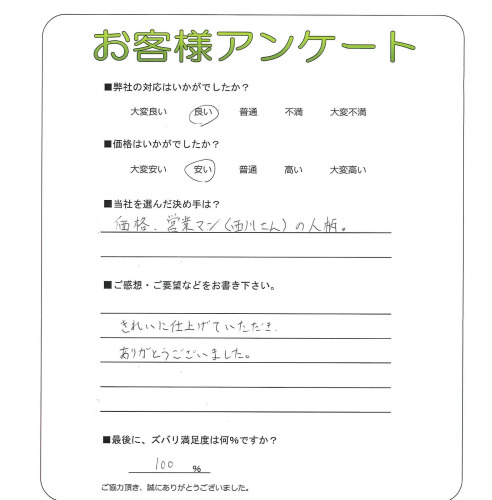 お客様アンケート
■弊社の対応はいかがでしたか？
大変良い 良い 普通 不満 大変不満
■価格はいかがでしたか？
大変安い 安い 普通 高い 大変高い
■当社を選んだ決め手は？
価格、営業マン(西川さん)の人柄。
■ご感想・ご要望などをお書き下さい。
きれいに仕上げていただき、
ありがとうございました。
■最後に、ズバリ満足度は何％ですか？
100 ％
ご協力頂き、誠にありがとうございました。